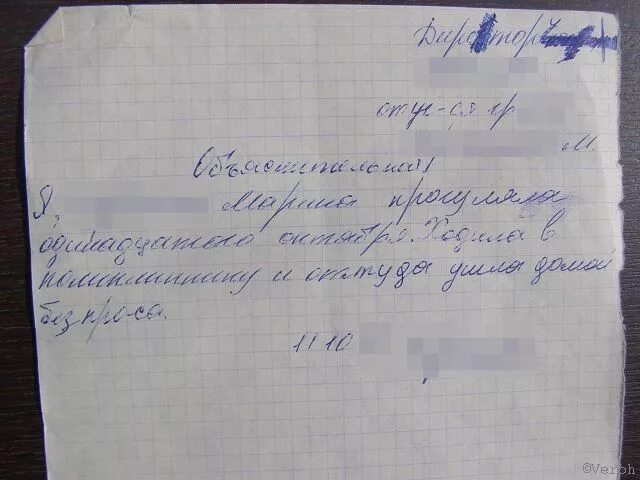 Директору
от уч-ся гр
М.
Объяснительная
Я, Марина прогуляла
одинадцатого октября. Ходила в
поликлинику и оттуда ушла домой
без проса.
11 10
©Verph